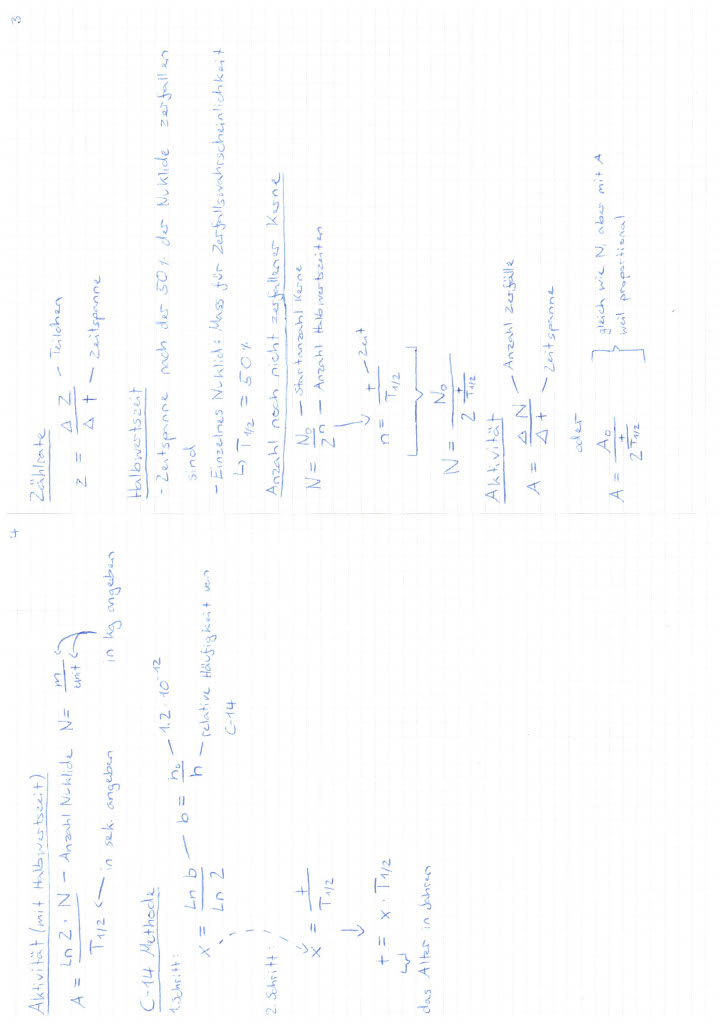 3
Zählrate
z = ΔZ / Δt – Teilchen – Zeitspanne
Halbwertszeit
- Zeitspanne nach der 50% der Nuklide zerfallen
sind
- Einzelnes Nuklid: Mass für Zerfallswahrscheinlichkeit
↳ T1/2 = 50%
Anzahl noch nicht zerfallener Kerne
N = N0 / 2^n – Startanzahl Kerne – Anzahl Halbwertszeiten
n = t / T1/2 – Zeit
N = N0 / 2^(t / T1/2)
Aktivität
A = ΔN / Δt – Anzahl Zerfälle – Zeitspanne
oder
A = A0 / 2^(t / T1/2) } gleich wie N, aber mit A
weil proportional
4
Aktivität (mit Halbwertszeit)
A = Ln 2 · N / T1/2 – Anzahl Nuklide N = m / unit
in sek. angeben in kg angeben
C-14 Methode
1. Schritt:
x = Ln b / Ln 2 – b = h0 / h – 1.2 · 10^-12
relative Häufigkeit von
C-14
2. Schritt:
x = t / T1/2
t = x · T1/2
das Alter in Jahren